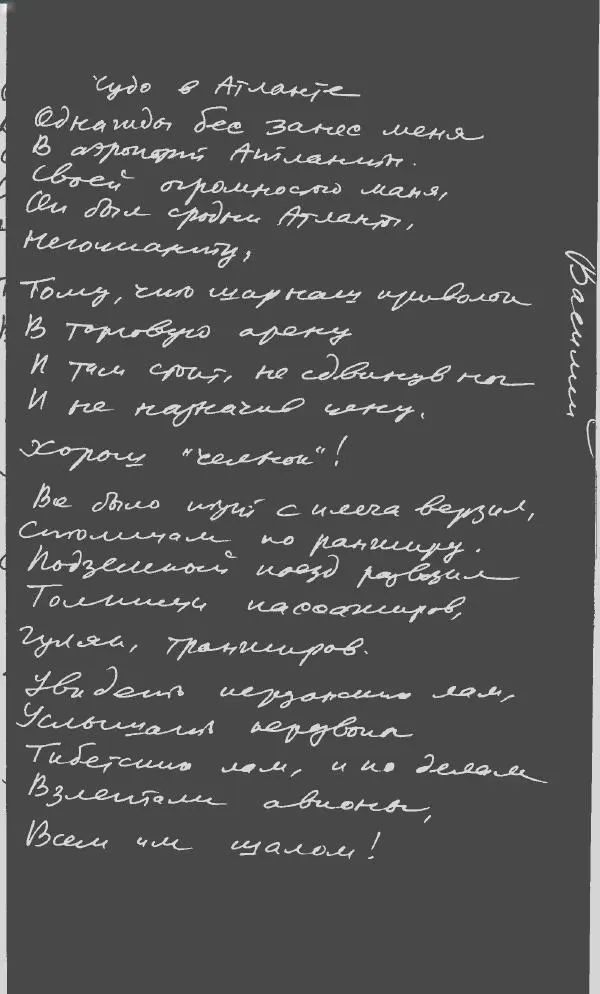 Чудо в Атланте
Однажды бес занес меня
В аэропорт Атланты.
Своей огромностью маня,
Он был сродни Атланту,
Негоцианту,
Тому, что шар наш приволок
В торговую арену
И там стоит, не сдвинув ног
И не назначив цену.
Хорош "челнок"!
Все было тут с плеча верзил,
Столицам по ранжиру.
Подземный поезд развозил
Толпищи пассажиров,
Гуляк, транжиров.
Увидеть лам,
Услышать перезвоны
Тибетских лам, и по делам
Взлетали авионы,
Всем им шалом!
Василий